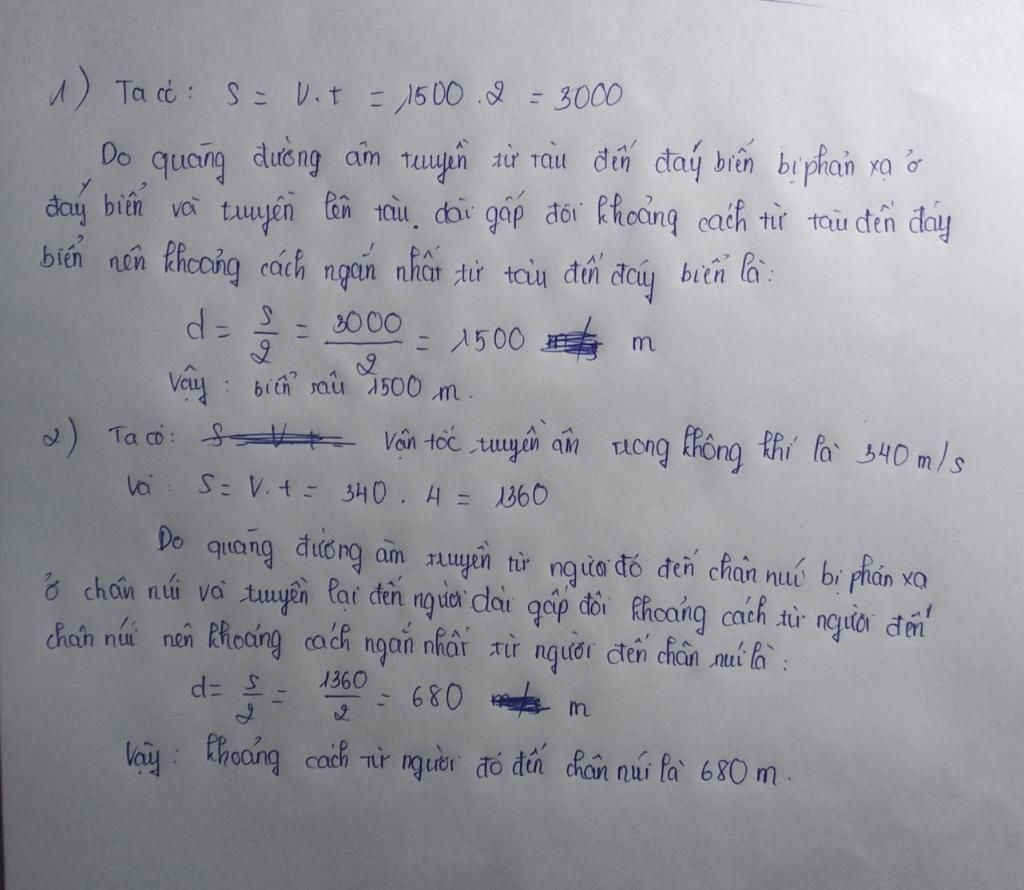 1) Ta có: S = V.t = 1500.2 = 3000
Do quãng đường âm truyền từ tàu đến đáy biển bị phản xạ ở
đáy biển và truyền lên tàu. dài gấp đôi khoảng cách từ tàu đến đáy
biển nên khoảng cách ngắn nhất từ tàu đến đáy biển là:
d = S/2 = 3000/2 = 1500 m
Vậy: biển sâu 1500 m.
2) Ta có: Vận tốc truyền âm trong không khí là 340 m/s
Và: S = V.t = 340.4 = 1360
Do quãng đường âm truyền từ người đó đến chân núi bị phản xạ
ở chân núi và truyền lại đến người dài gấp đôi khoảng cách từ người đến
chân núi nên khoảng cách ngắn nhất từ người đến chân núi là:
d = S/2 = 1360/2 = 680 m
Vậy: khoảng cách từ người đó đến chân núi là 680 m.